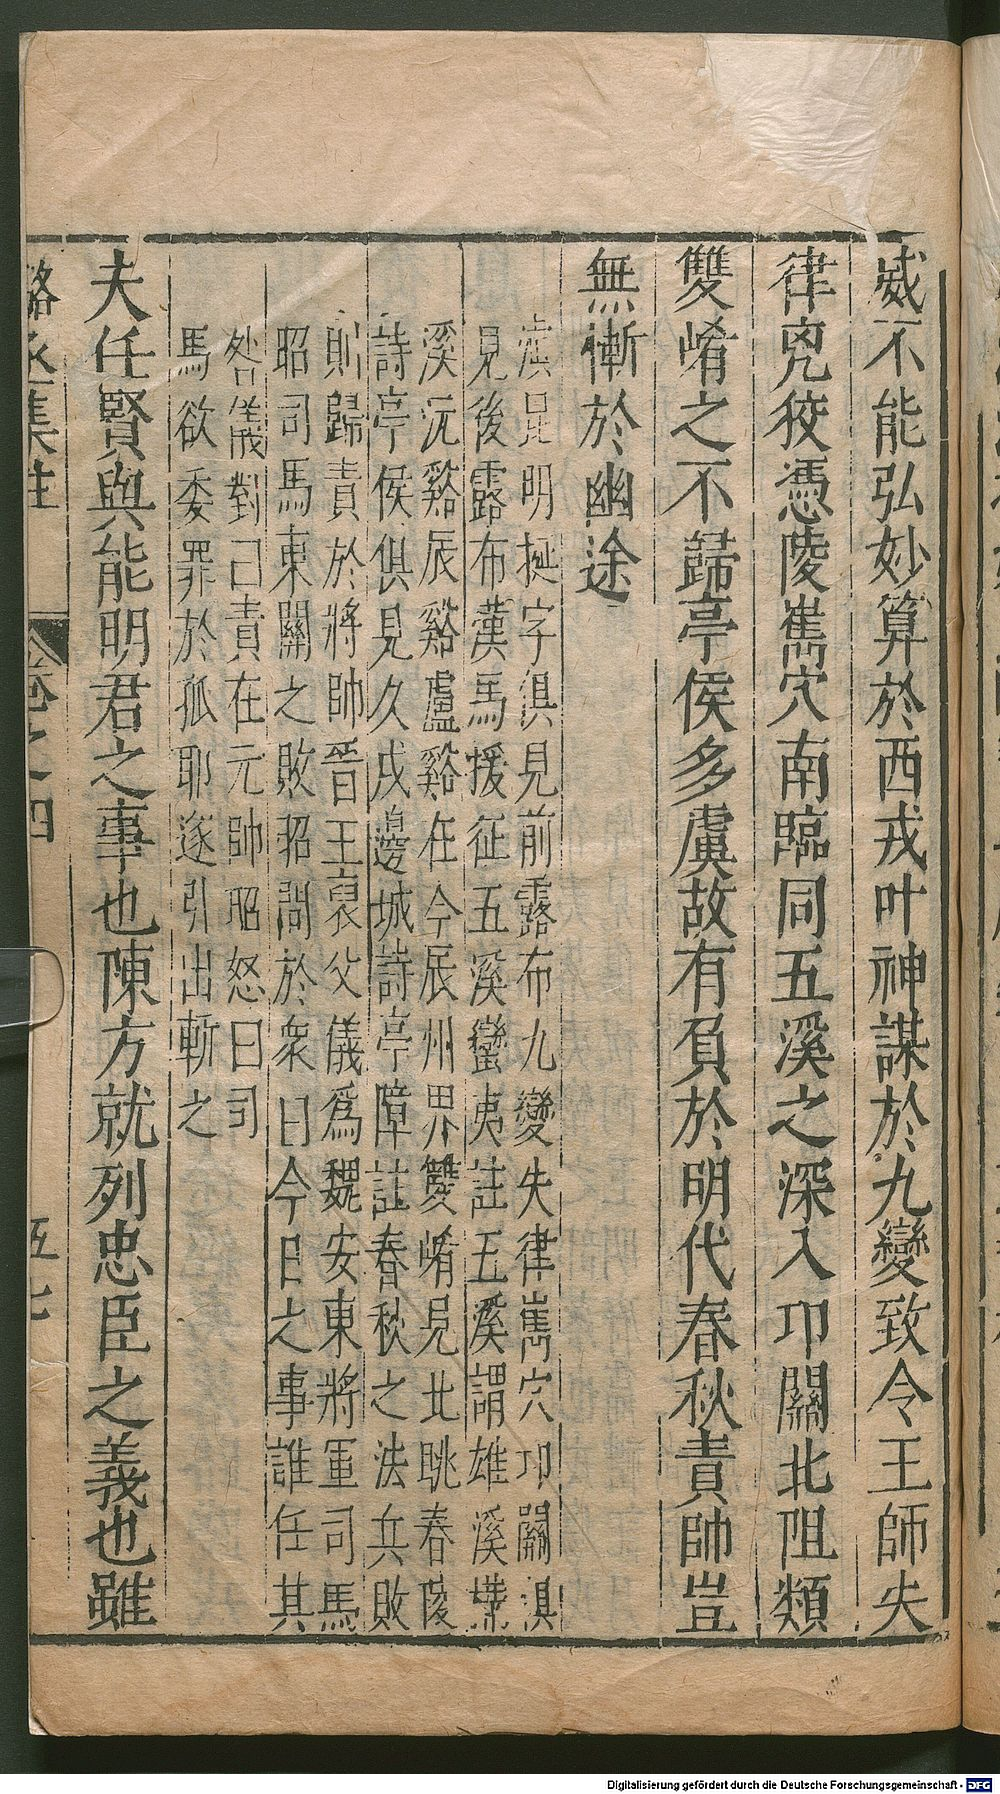 威不能弘妙算於西戎叶神謀於九變致令王師失
律兇狡憑陵嶲穴南臨同五溪之深入卭關北阻類
雙崤之不歸亭侯多虞故有負於明代春秋責帥豈
無慚於幽途
滇昆明挻字俱見前露布九變失律嶲穴卭關滇
見後露布漢馬援征五溪蠻夷註五溪謂雄溪樠
溪沅谿辰谿盧谿在今辰州界雙崤見北眺春陵
詩亭侯俱見久戍邊城詩亭障註春秋之法兵敗
則歸責於將帥晉王裒父儀爲魏安東將軍司馬
昭司馬東關之敗昭問於衆曰今日之事誰任其
咎儀對曰責在元帥昭怒曰司
馬欲委罪於孤耶遂引出斬之
夫任賢與能明君之事也陳方就列忠臣之義也雖
駱丞集註 卷之四 五七
Digitalisierung gefördert durch die Deutsche Forschungsgemeinschaft - DFG